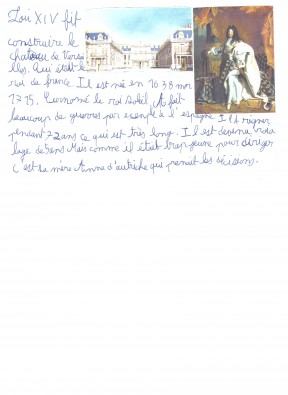 Loui XIV fit
construire le
chateau de Versa
lles. Qui était le
roi de france. Il est née en 1638 mor
1715. Surnomé le roi Soleil. A fait
beaucoup de guerres par exemple à l'espagne Il a régner
pendant 72 ans ce qui est très long. Il est devenu roi a
lage de 5 ens Mais comme il était trop jeune pour diriger
C'est sa mère Anne d'autriche qui prenait les décisions.